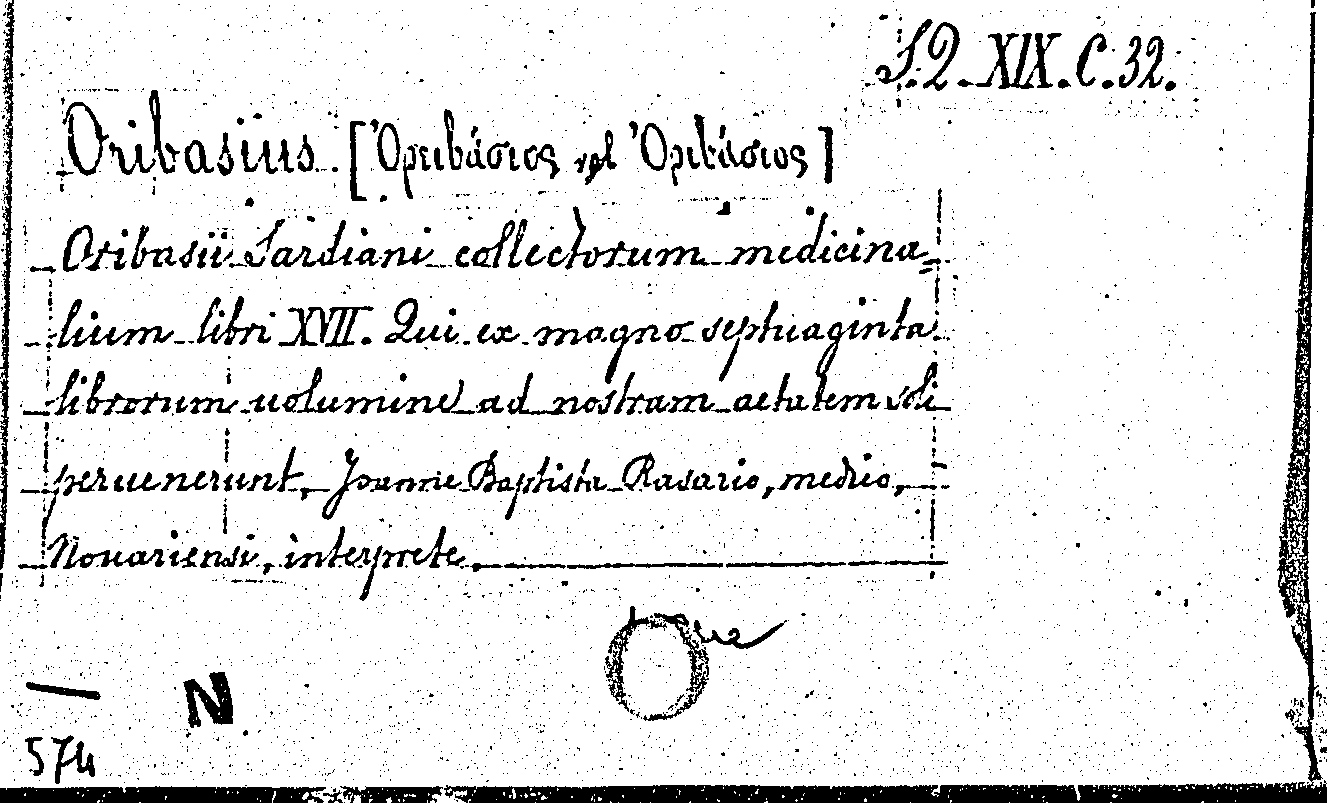 S.2. XIX.C.32.
Oribasius. [Ὀρειβάσιος vel Ὀριβάσιος]
Oribasii Sardiani collectorum medicina=
lium libri XVII. Qui ex magno septuaginta
librorum uolumine ad nostram aetatem soli
peruenerunt, Joanne Baptista Rasario, medico,
Nouariensi, interprete.
N
574